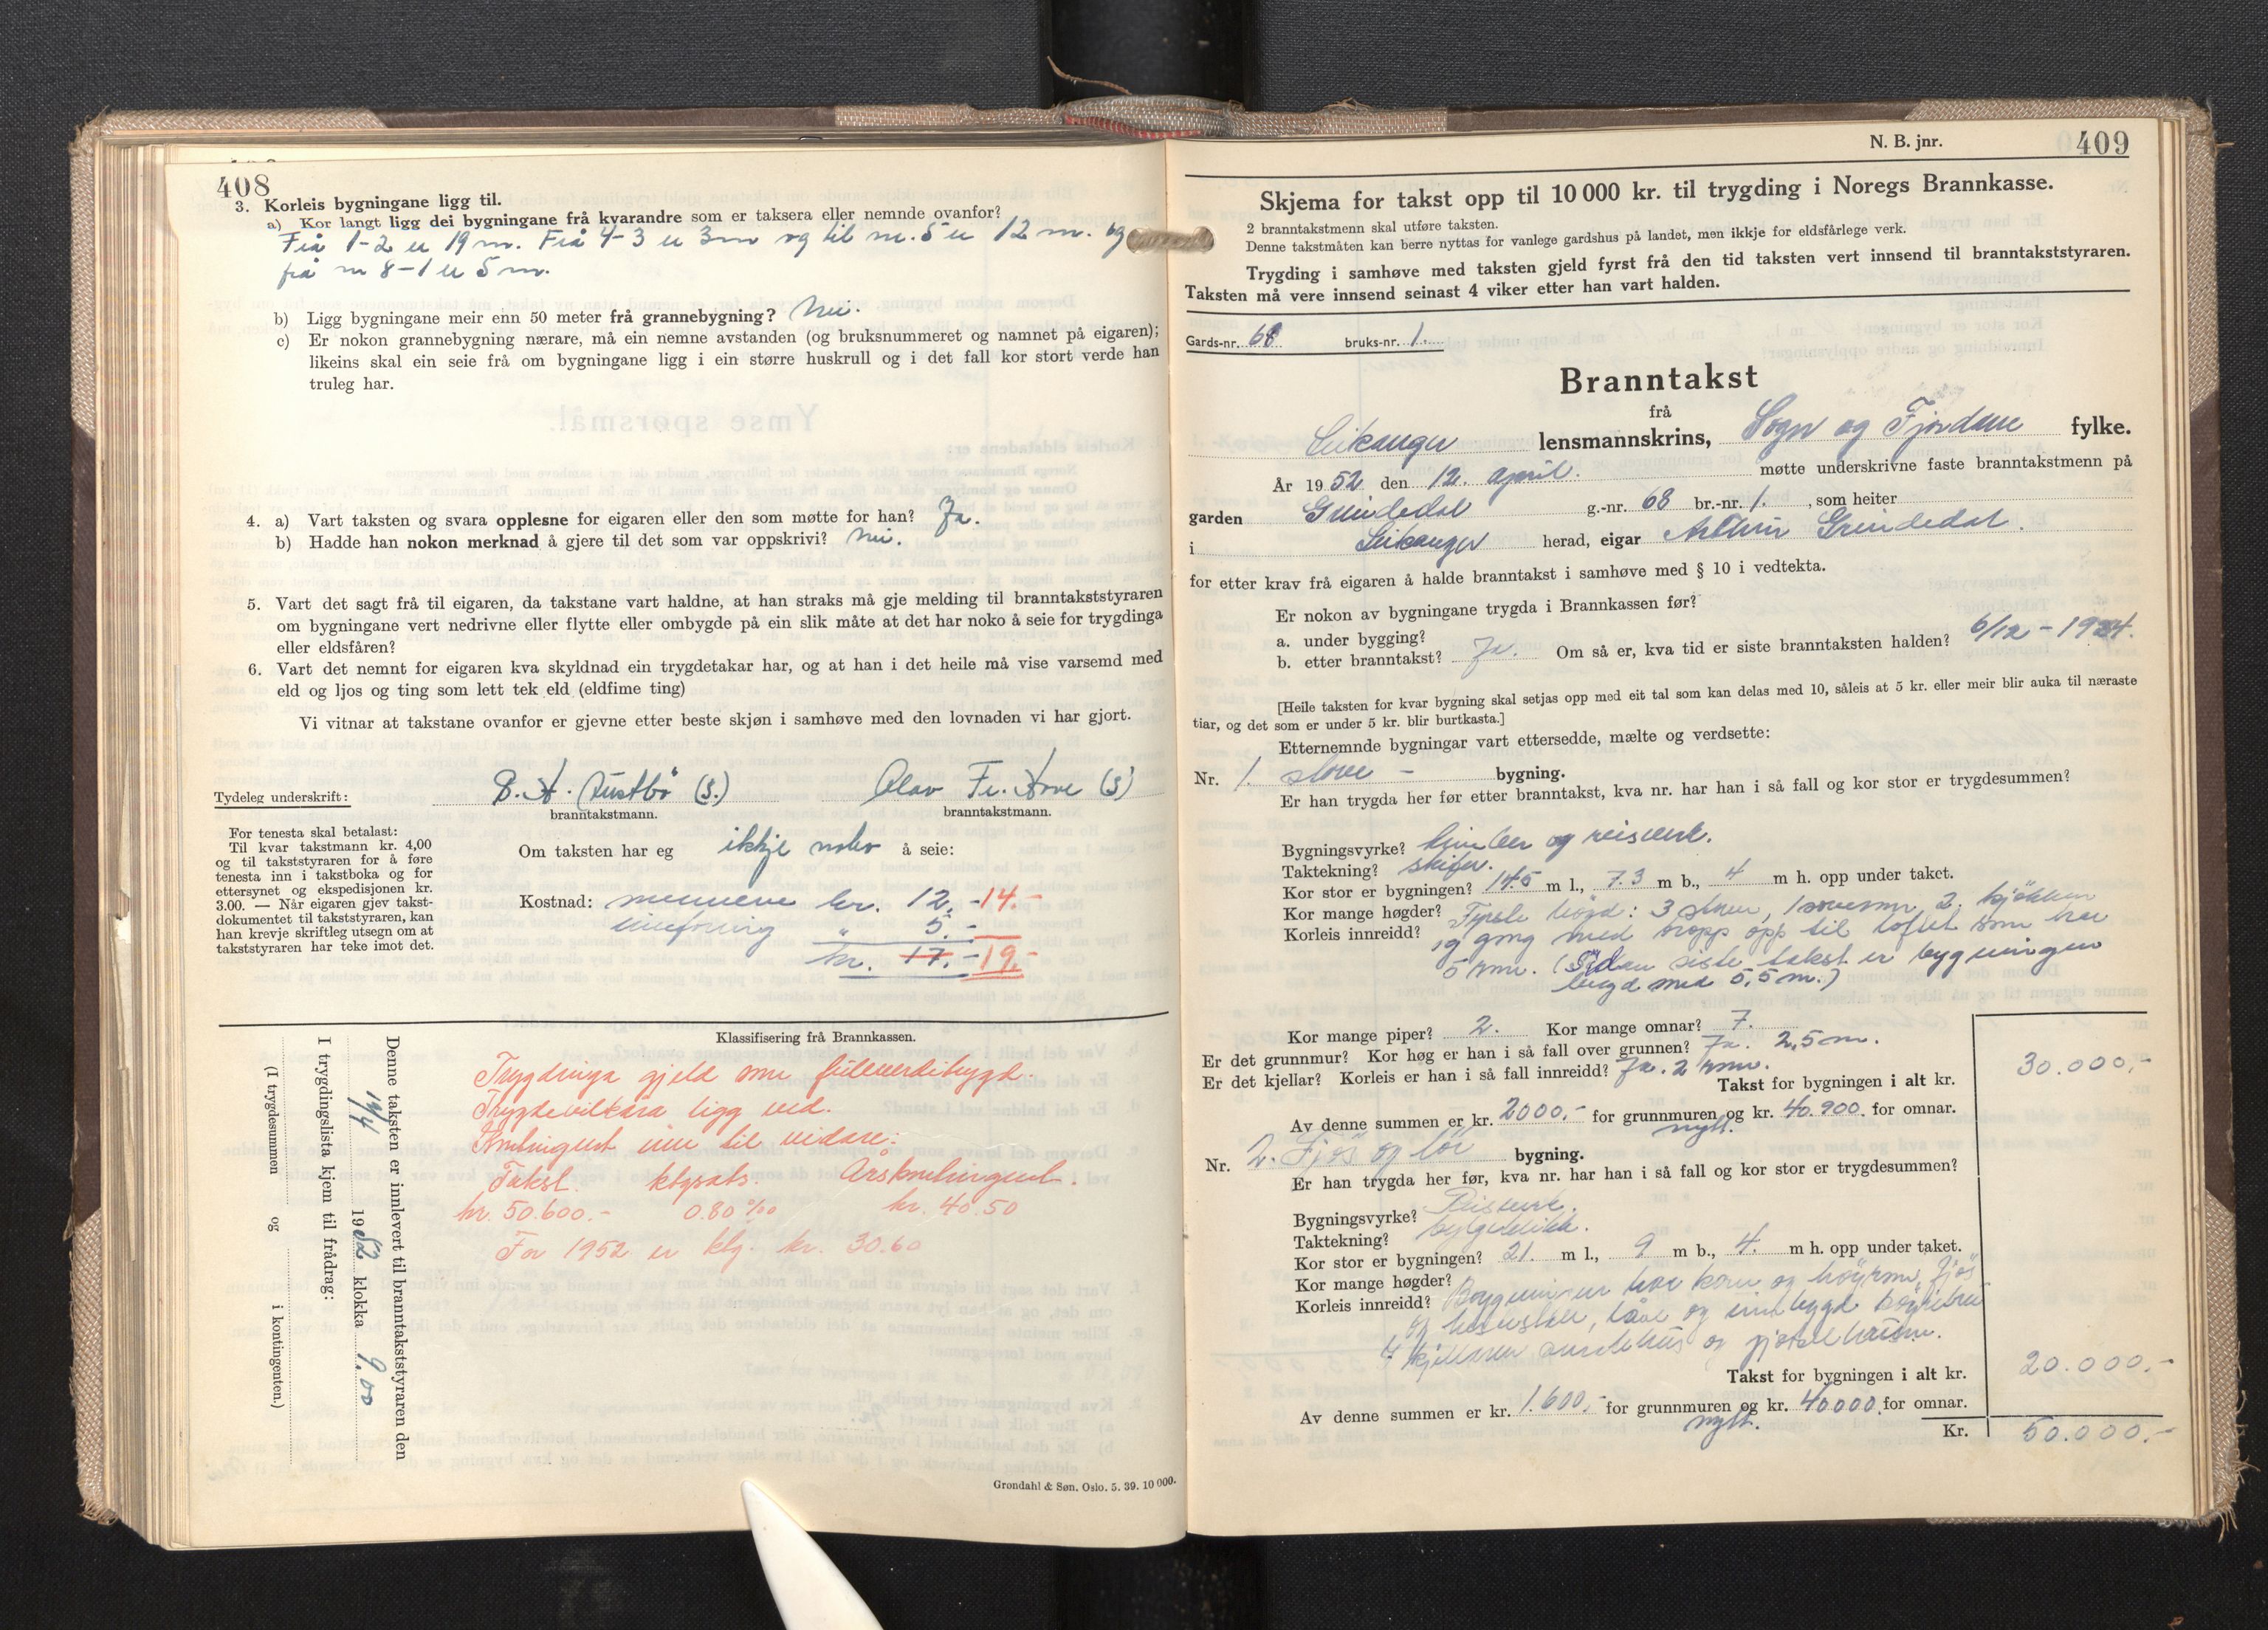 408
3. Korleis bygningane ligg til.
a) Kor langt ligg dei bygningane frå kvarandre som er taksera eller nemnde ovanfor?
Frå 1-2 er 19 m. Frå 4-3 er 3m og til nr. 5 er 12 m. og
frå nr 8-1 er 5 m.
b) Ligg bygningane meir enn 50 meter frå grannebygning? Nei.
c) Er nokon grannebygning nærare, må ein nemne avstanden (og bruksnummeret og namnet på eigaren);
likeins skal ein seie frå om bygningane ligg i ein større huskrull og i det fall kor stort verde han
truleg har.
4. a) Vart taksten og svara opplesne for eigaren eller den som møtte for han? Ja.
b) Hadde han nokon merknad å gjere til det som var oppskrivi? Nei.
5. Vart det sagt frå til eigaren, da takstane vart haldne, at han straks må gje melding til branntakststyraren
om bygningane vert nedrivne eller flytte eller ombygde på ein slik måte at det har noko å seie for trygdinga
eller eldsfåren?
6. Vart det nemnt for eigaren kva skyldnad ein trygdetakar har, og at han i det heile må vise varsemd med
eld og ljos og ting som lett tek eld (eldfime ting)
Vi vitnar at takstane ovanfor er gjevne etter beste skjøn i samhøve med den lovnaden vi har gjort.
Tydeleg underskrift: (s.) Olav Fr. Hove (s)
branntakstmann. branntakstmann.
For tenesta skal betalast:
Til kvar takstmann kr. 4,00
og til takststyraren for å føre
tenesta inn i takstboka og for
ettersynet og ekspedisjonen kr.
3.00. — Når eigaren gjev takst-
dokumentet til takststyraren, kan
han krevje skriftleg utsegn om at
takststyraren har teke imot det.
Om taksten har eg ikkje noko å seie:
Kostnad: mennene kr. 12.- 14.-
innføring " 5.-
kr. 17.- 19.-
Klassifisering frå Brannkassen.
Trygdinga gjeld som fullverdetrygd.
Trygdevilkåra ligg ved.
Kontingent inn til vidare:
Takst. ktgsats. Årskontingent.
kr. 50.600.- 0.80 ‰ kr. 40.50
For 1952 er ktg. kr. 30.60
Denne taksten er innlevert til branntakststyraren den
19/4 1952 klokka 9.00
I trygdingslista kjem til frådrag:
(I trygdesummen og i kontingenten.)
Grøndahl & Søn. Oslo. 5. 39. 10 000.
N. B. jnr. 409
Skjema for takst opp til 10 000 kr. til trygding i Noregs Brannkasse.
2 branntakstmenn skal utføre taksten.
Denne takstmåten kan berre nyttas for vanlege gardshus på landet, men ikkje for eldsfårlege verk.
Trygding i samhøve med taksten gjeld fyrst frå den tid taksten vert innsend til branntakststyraren.
Taksten må vere innsend seinast 4 viker etter han vart halden.
Gards-nr. 68 bruks-nr. 1.
Branntakst
frå
Leikanger lensmannskrins, Sogn og Fjordane fylke.
År 1952 den 12. april. møtte underskrivne faste branntakstmenn på
garden Grindedal g.-nr. 68 br.-nr. 1. , som heiter
i Leikanger herad, eigar Arthur Grindedal.
for etter krav frå eigaren å halde branntakst i samhøve med § 10 i vedtekta.
Er nokon av bygningane trygda i Brannkassen før?
a. under bygging?
b. etter branntakst? Ja. Om så er, kva tid er siste branntaksten halden? 6/12 - 1934.
[Heile taksten for kvar bygning skal setjas opp med eit tal som kan delas med 10, såleis at 5 kr. eller meir blir auka til næraste
tiar, og det som er under 5 kr. blir burtkasta.]
Etternemnde bygningar vart ettersedde, mælte og verdsette:
Nr. 1. stove - bygning.
Er han trygda her før etter branntakst, kva nr. har han i så fall og kor stor er trygdesummen?
Bygningsvyrke? timber og reisverk.
Taktekning? skifer.
Kor stor er bygningen? 14.5 m l., 7.3 m b., 4 m h. opp under taket.
Kor mange høgder? Fyrste høgd: 3 stover, 1 soverom, 2. kjøkken
Korleis innreidd? og gang med tropp opp til loftet som har
5 rom. (Sidan siste takst er bygningen
bygd med 5,5 m.)
Kor mange piper? 2. Kor mange omnar? 7.
Er det grunnmur? Kor høg er han i så fall over grunnen? Ja. 2,5 m.
Er det kjellar? Korleis er han i så fall innreidd? Ja. 2 rom.
Takst for bygningen i alt kr. 30.000,-
Av denne summen er kr. 2000,- for grunnmuren og kr. 40.900. for omnar.
nytt.
Nr. 2. Fjøs og løe bygning.
Er han trygda her før, kva nr. har han i så fall og kor stor er trygdesummen?
Bygningsvyrke? Reisverk.
Taktekning? bylgjeblikk.
Kor stor er bygningen? 21. m l., 9 m b., 4. m h. opp under taket.
Kor mange høgder? Bygningen har korn og høyrom, fjøs
Korleis innreidd? og hestestall, låve og innbygd køyrebru
I kjellaren surslehus og gjødselhusrom.
Takst for bygningen i alt kr. 20.000.-
Av denne summen er kr. 1.600,- for grunnmuren og kr. 40000. for omnar.
nytt.
Kr. 50.000.-